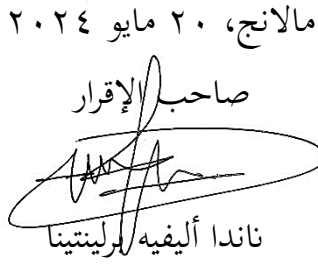 مالانج، ٢٠ مايو ٢٠٢٤
صاحب الإقرار
ناندا أليفيه برلينتينا